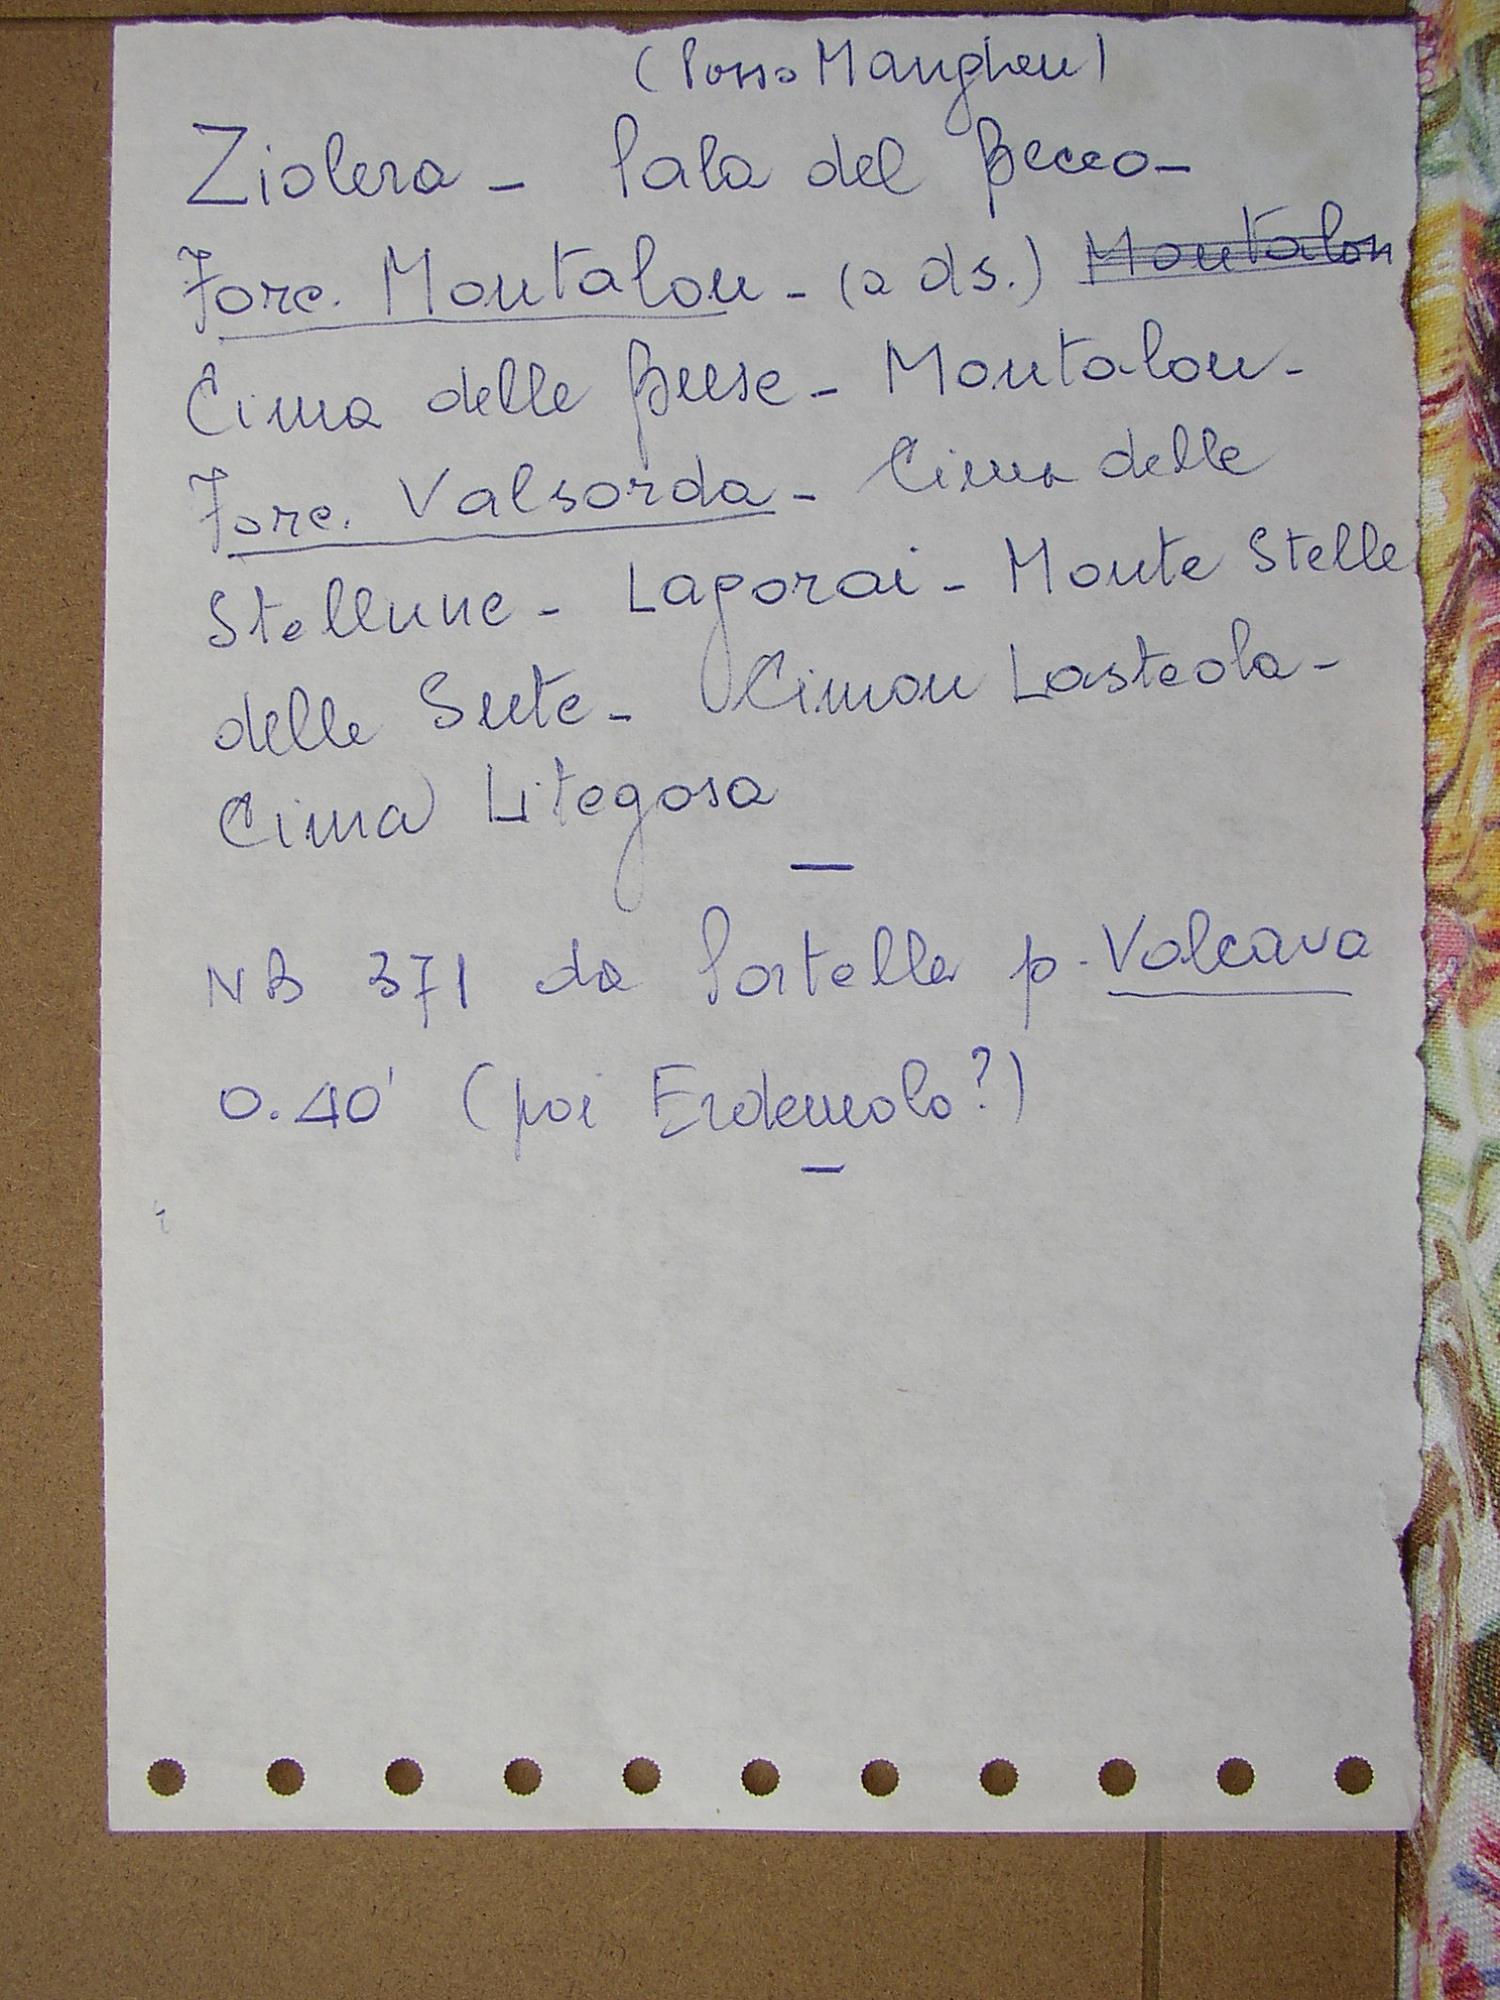 (Passo Manghen)
Ziolera - Pala del Becco -
Forc. Montalon - (a ds.) Montalon
Cima delle Buse - Montalon -
Forc. Valsorda - Cima delle
Stellune - Lagorai - Monte Stelle
delle Sute - Cimon Lasteola -
Cima Litegosa
NB 371 da Portella p. Valcava
0.40' (poi Erdemolo?)